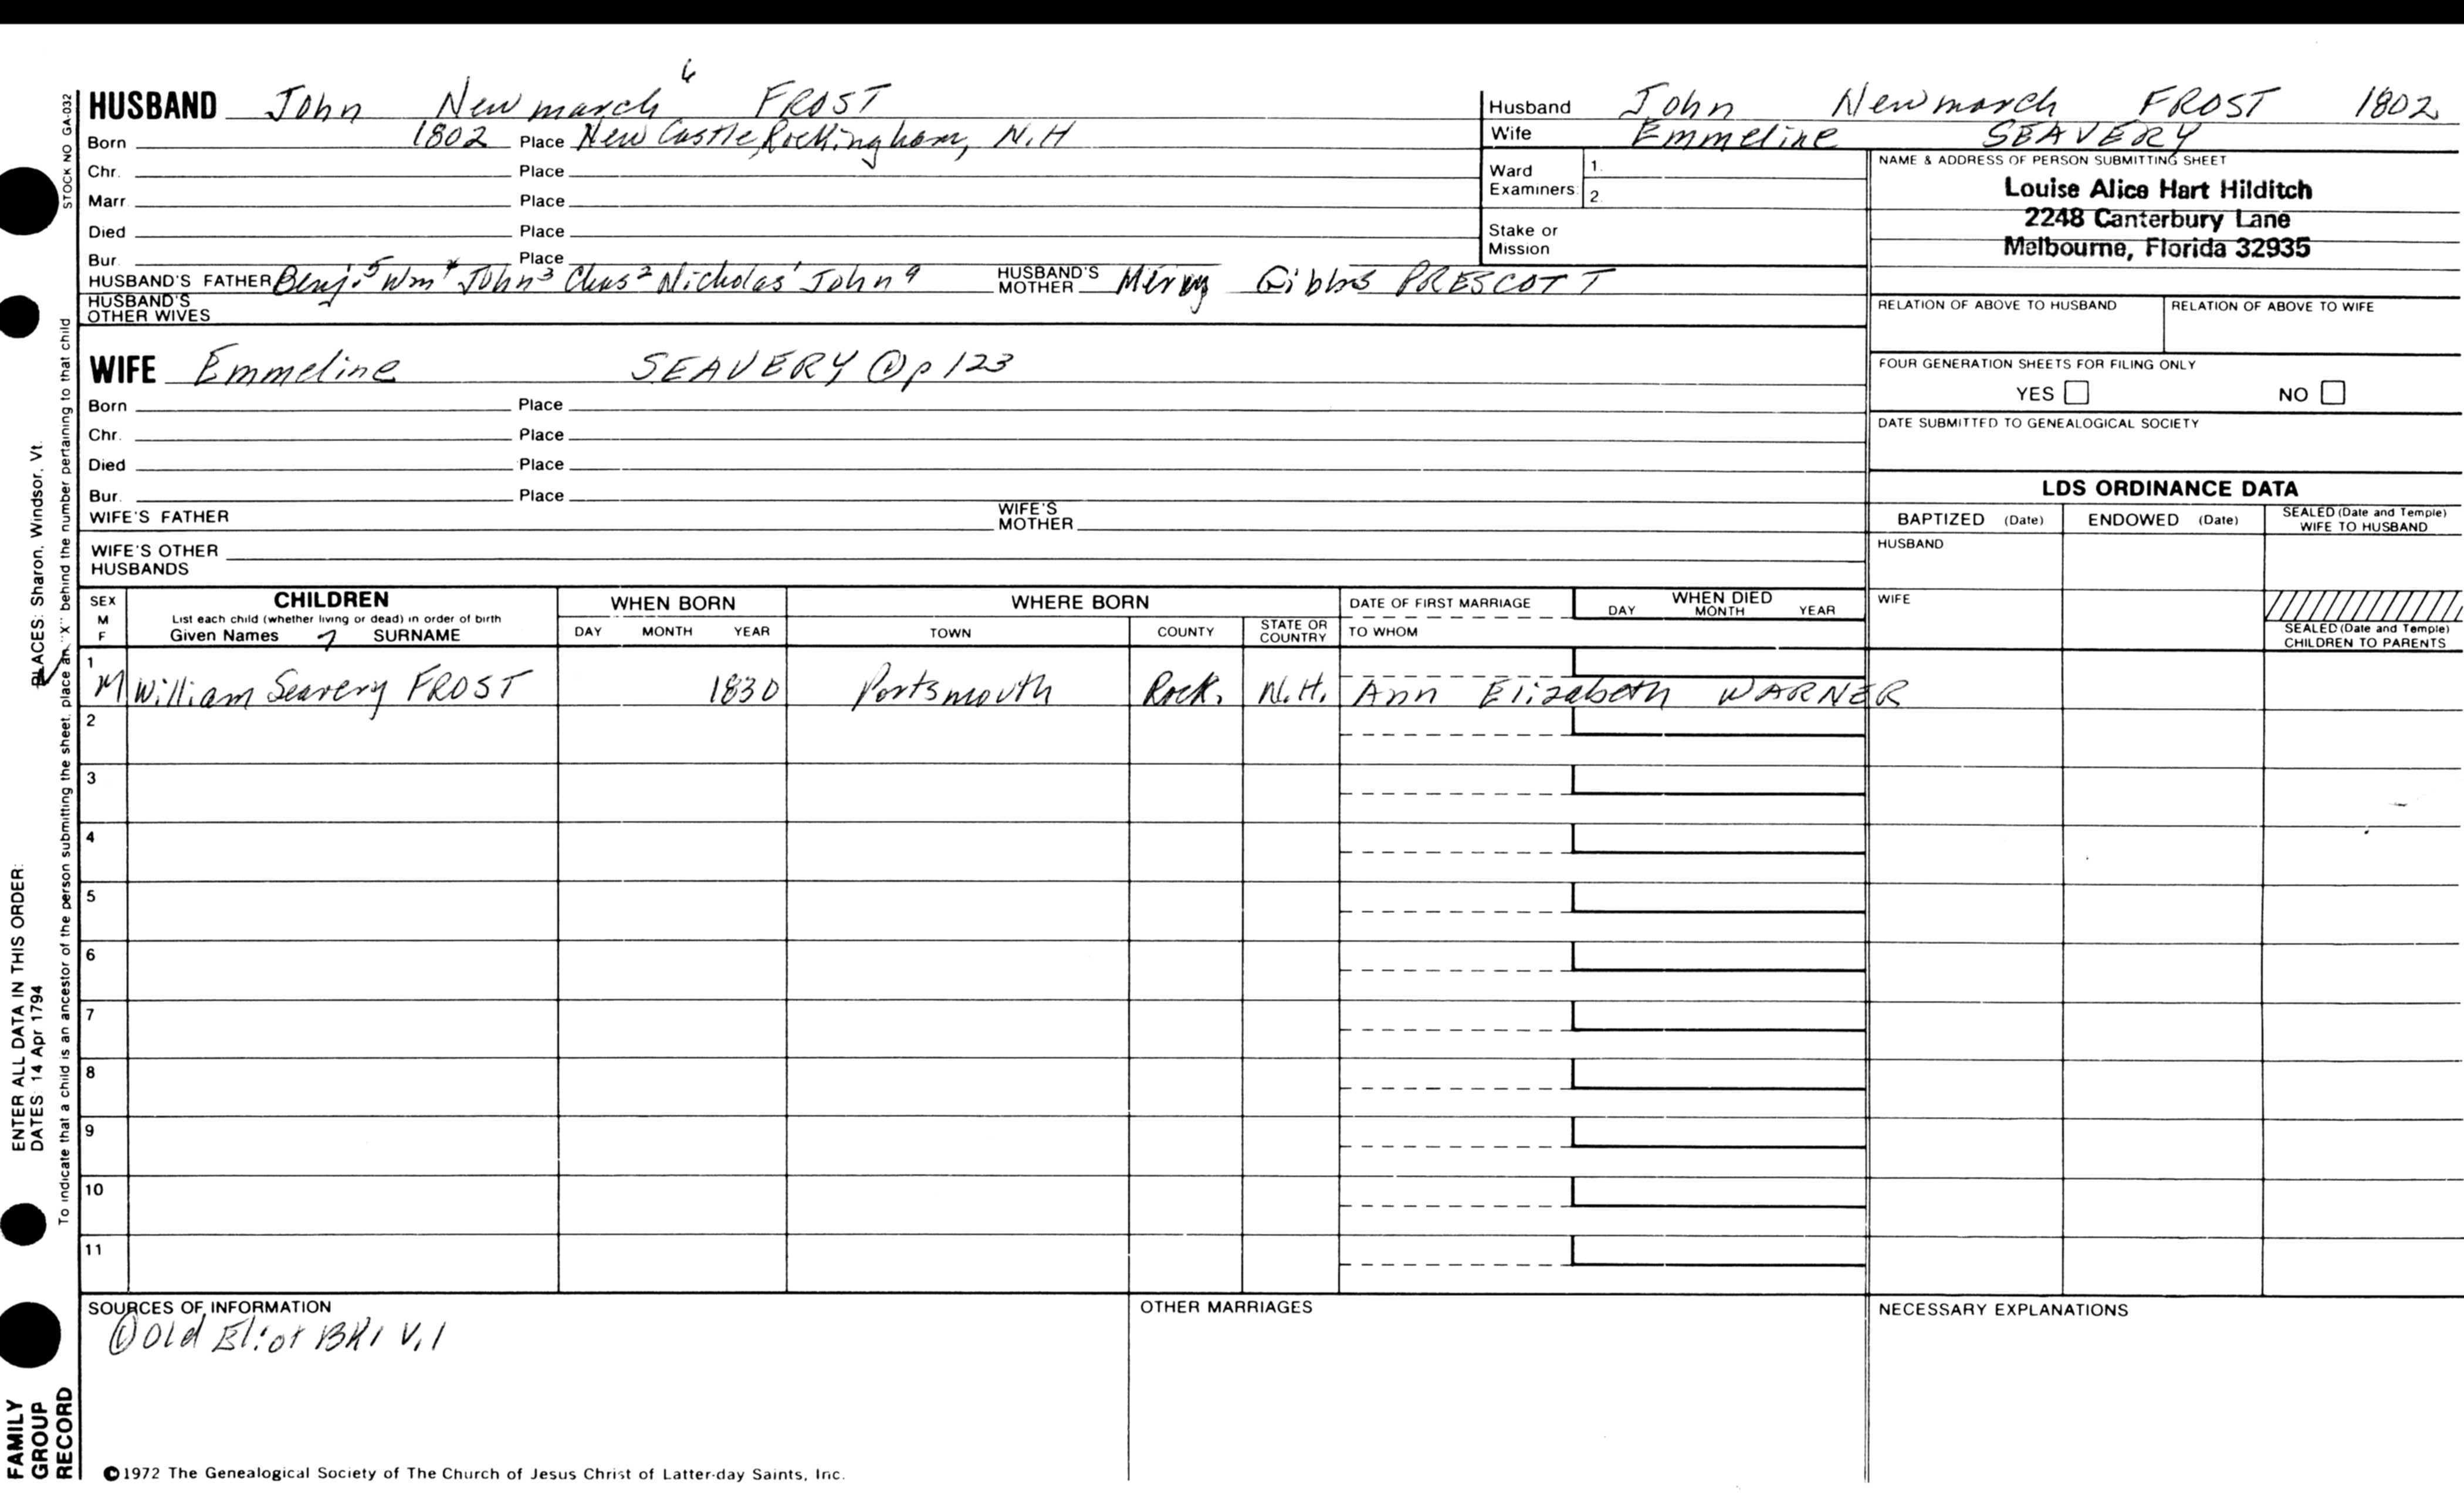 HUSBAND John Newmarch 6 FROST
Born 1802 Place New Castle, Rockingham, N.H
Chr. Place
Marr. Place
Died Place
Bur. Place
HUSBAND'S FATHER Benj. 5 Wm 4 John 3 Chas 2 Nicholas 1 John 9 HUSBAND'S MOTHER Gibbs PRESCOTT
HUSBAND'S OTHER WIVES
WIFE Emmeline SEAVERY ① p 123
Born Place
Chr. Place
Died Place
Bur. Place
WIFE'S FATHER WIFE'S MOTHER
WIFE'S OTHER HUSBANDS
Husband John Newmarch FROST 1802
Wife Emmeline SEAVERY
Ward Examiners: 1. 2.
Stake or Mission
NAME & ADDRESS OF PERSON SUBMITTING SHEET
Louise Alice Hart Hilditch
2248 Canterbury Lane
Melbourne, Florida 32935
RELATION OF ABOVE TO HUSBAND RELATION OF ABOVE TO WIFE
FOUR GENERATION SHEETS FOR FILING ONLY
YES NO
DATE SUBMITTED TO GENEALOGICAL SOCIETY
LDS ORDINANCE DATA
BAPTIZED (Date) ENDOWED (Date) SEALED (Date and Temple) WIFE TO HUSBAND
HUSBAND
WIFE
SEALED (Date and Temple) CHILDREN TO PARENTS
SEX M F
CHILDREN
List each child (whether living or dead) in order of birth
Given Names 7 SURNAME
WHEN BORN
DAY MONTH YEAR
WHERE BORN
TOWN COUNTY STATE OR COUNTRY
DATE OF FIRST MARRIAGE
TO WHOM
WHEN DIED
DAY MONTH YEAR
1
M William Seavery FROST 1830 Portsmouth Rock. N.H. Ann Elizabeth WARNER
2
3
4
5
6
7
8
9
10
11
SOURCES OF INFORMATION
① Old Eliot BK1 V.1
OTHER MARRIAGES
NECESSARY EXPLANATIONS
©1972 The Genealogical Society of The Church of Jesus Christ of Latter-day Saints, Inc.
STOCK NO GA-032
To indicate that a child is an ancestor of the person submitting the sheet, place an "X" behind the number pertaining to that child
ENTER ALL DATA IN THIS ORDER:
DATES 14 Apr 1794
PLACES: Sharon, Windsor, Vt.
FAMILY
GROUP
RECORD